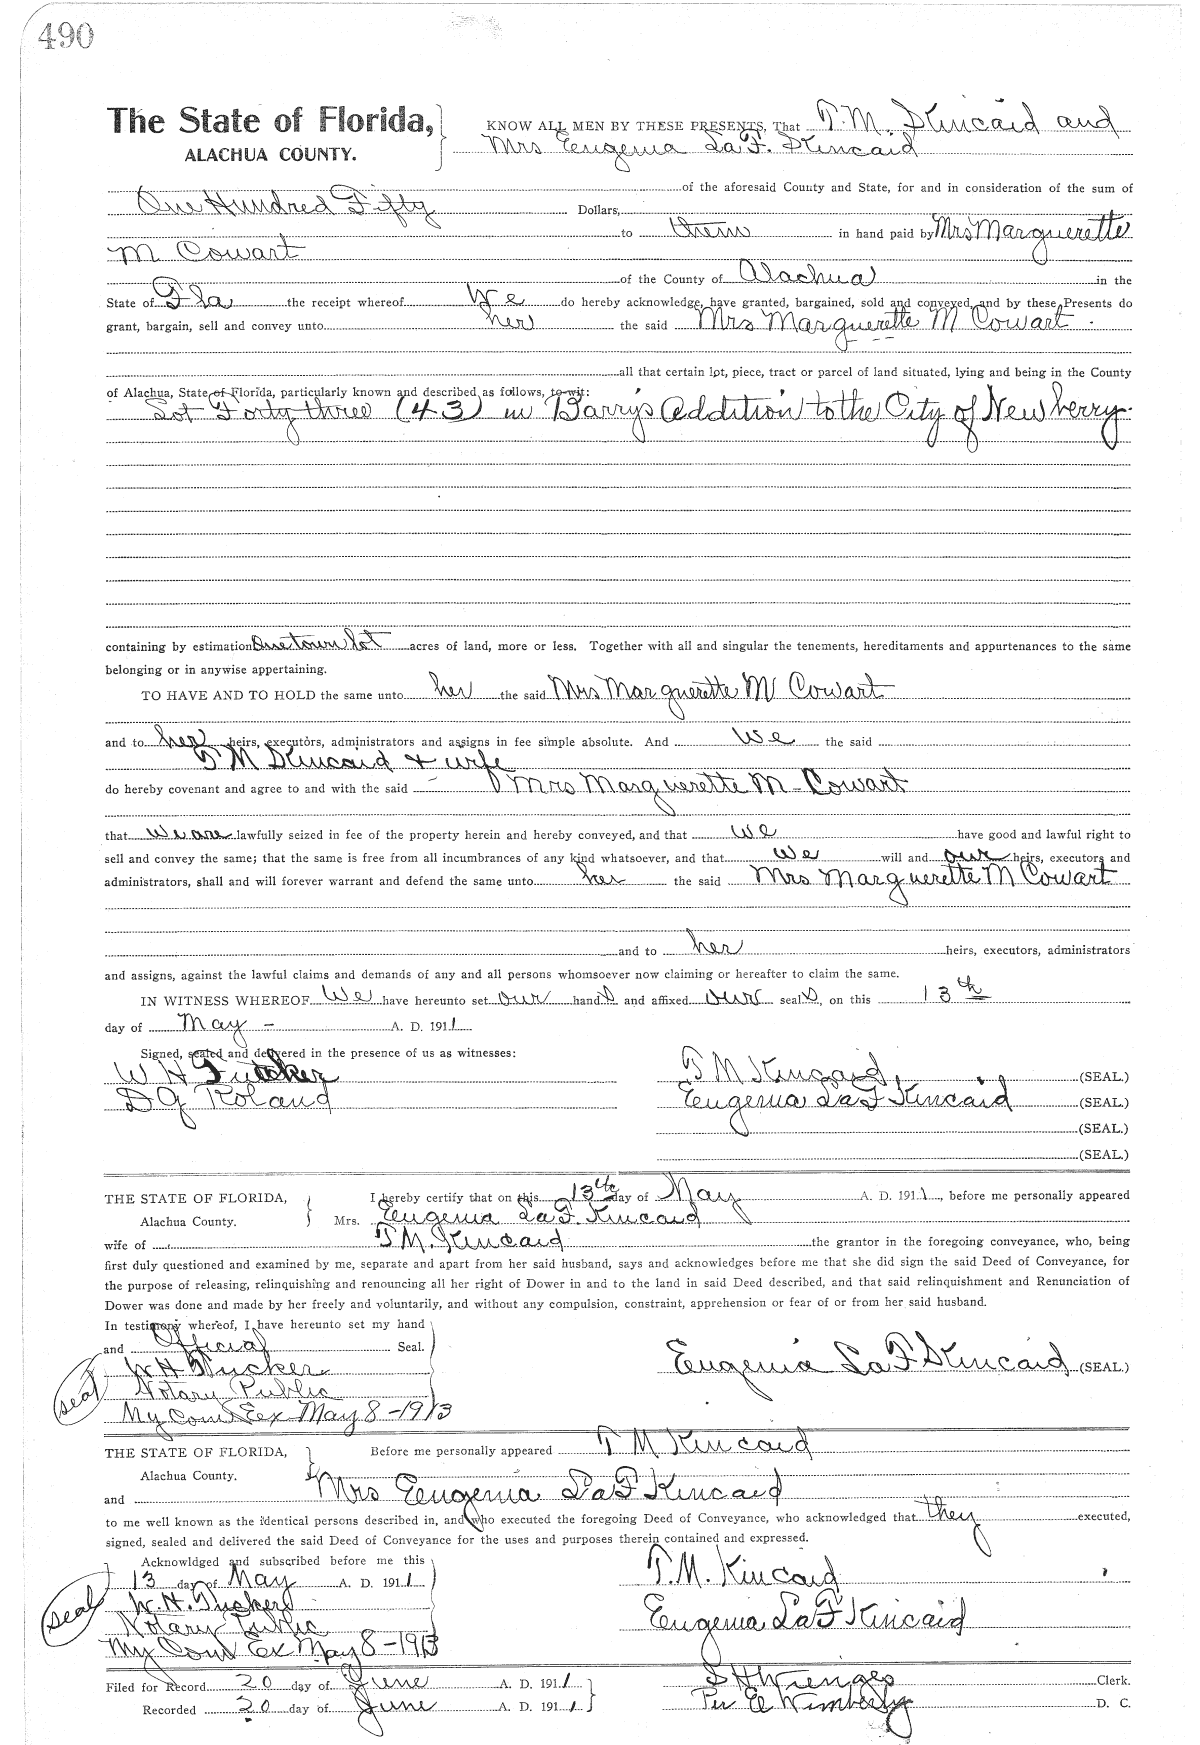 490
The State of Florida,
ALACHUA COUNTY.
KNOW ALL MEN BY THESE PRESENTS, That T. M. Kincaid and
Mrs Eugenia LaF. Kincaid
of the aforesaid County and State, for and in consideration of the sum of
One Hundred Fifty Dollars,
to them in hand paid by Mrs Marguerette
M Cowart
of the County of Alachua in the
State of Fla the receipt whereof We do hereby acknowledge, have granted, bargained, sold and conveyed, and by these Presents do
grant, bargain, sell and convey unto her the said Mrs Marguerette M Cowart.
all that certain lot, piece, tract or parcel of land situated, lying and being in the County
of Alachua, State of Florida, particularly known and described as follows, to-wit:
Lot Forty three (43) in Barry's Addition to the City of Newberry.
containing by estimation One town lot acres of land, more or less. Together with all and singular the tenements, hereditaments and appurtenances to the same
belonging or in anywise appertaining.
TO HAVE AND TO HOLD the same unto her the said Mrs Marguerette M Cowart
and to her heirs, executors, administrators and assigns in fee simple absolute. And We the said
T M Kincaid + wife
do hereby covenant and agree to and with the said Mrs Marguerette M - Cowart
that We are lawfully seized in fee of the property herein and hereby conveyed, and that we have good and lawful right to
sell and convey the same; that the same is free from all incumbrances of any kind whatsoever, and that we will and our heirs, executors and
administrators, shall and will forever warrant and defend the same unto her the said Mrs Marguerette M Cowart
and to her heirs, executors, administrators
and assigns, against the lawful claims and demands of any and all persons whomsoever now claiming or hereafter to claim the same.
IN WITNESS WHEREOF We have hereunto set our hands and affixed our seals, on this 13th
day of May - A. D. 1911
Signed, sealed and delivered in the presence of us as witnesses:
W H Tucker
D G Roland
T M Kincaid (SEAL.)
Eugenia LaF Kincaid (SEAL.)
(SEAL.)
(SEAL.)
THE STATE OF FLORIDA,
Alachua County.
I hereby certify that on this 13th day of May A. D. 1911, before me personally appeared
Mrs. Eugenia LaF. Kincaid
wife of T. M. Kincaid the grantor in the foregoing conveyance, who, being
first duly questioned and examined by me, separate and apart from her said husband, says and acknowledges before me that she did sign the said Deed of Conveyance, for
the purpose of releasing, relinquishing and renouncing all her right of Dower in and to the land in said Deed described, and that said relinquishment and Renunciation of
Dower was done and made by her freely and voluntarily, and without any compulsion, constraint, apprehension or fear of or from her said husband.
In testimony whereof, I have hereunto set my hand
and Official Seal.
W H Tucker
Notary Public
My Com Ex May 8 - 1913
seal
Eugenia LaF Kincaid (SEAL.)
THE STATE OF FLORIDA,
Alachua County.
Before me personally appeared T M Kincaid
and Mrs Eugenia LaF Kincaid
to me well known as the identical persons described in, and who executed the foregoing Deed of Conveyance, who acknowledged that they executed,
signed, sealed and delivered the said Deed of Conveyance for the uses and purposes therein contained and expressed.
Acknowldged and subscribed before me this
13 day of May A. D. 1911
W. H. Tucker
Notary Public
My Com Ex May 8 - 1913
seal
T. M. Kincaid
Eugenia LaF Kincaid
Filed for Record 20 day of June A. D. 1911
Recorded 20 day of June A. D. 1911
S H Wienges Clerk.
Per E Wimberly D. C.